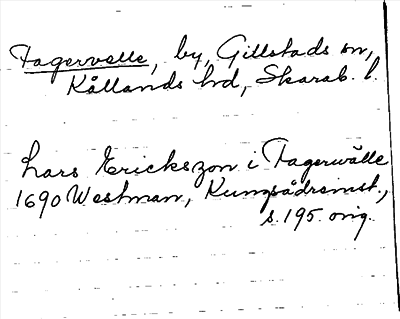 Fagervalle, by, Gillstads sn,
Kållands hd, Skarab. l.
Lars Erickszon i Fagerwälle
1690 Westman, Kungsådreinst.,
s. 195. orig.